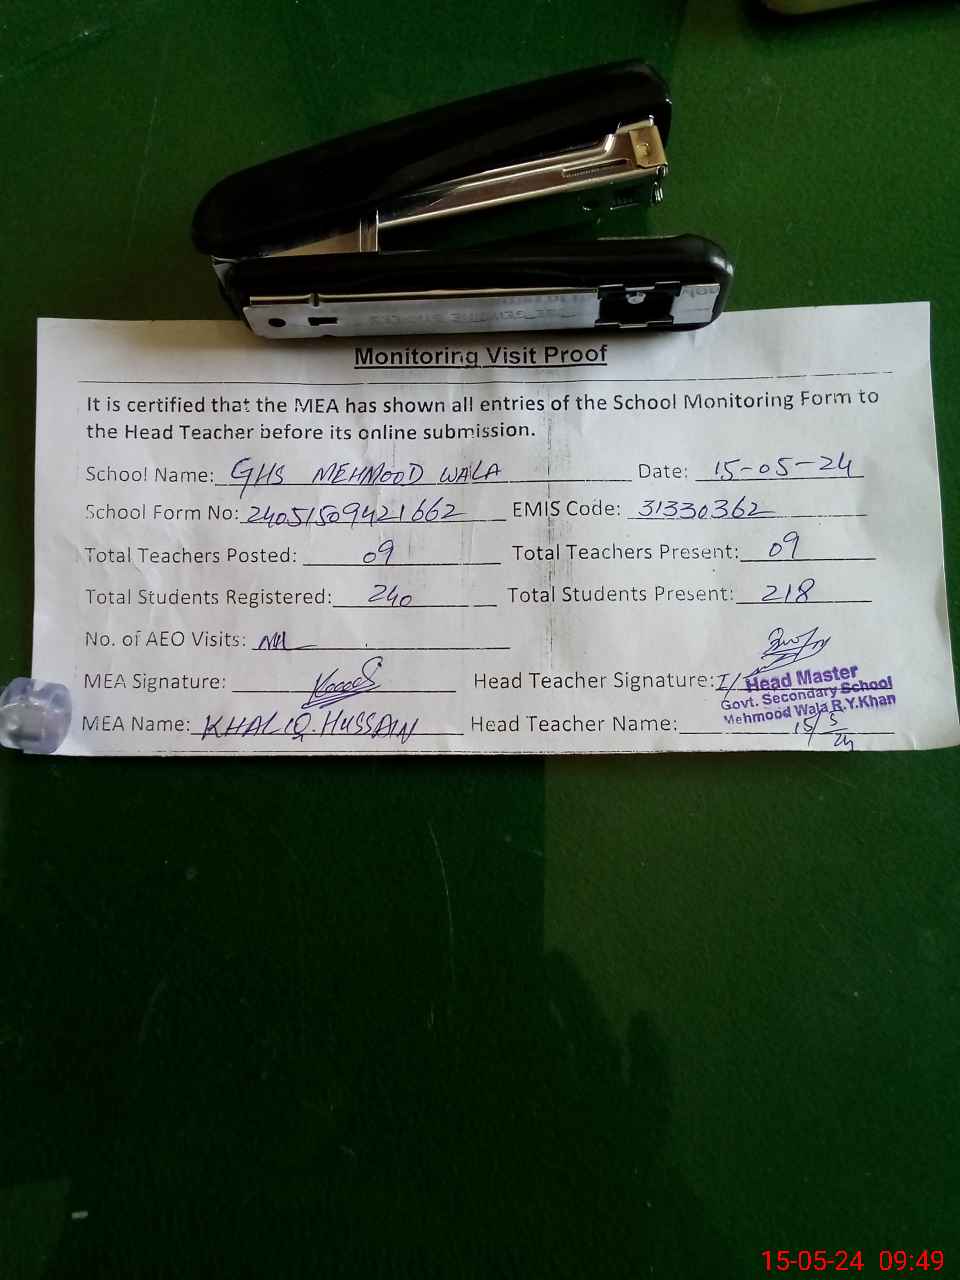 Monitoring Visit Proof
It is certified that the MEA has shown all entries of the School Monitoring Form to
the Head Teacher before its online submission.
School Name: GHS MEHMOOD WALA Date: 15-05-24
School Form No: 24051509421662 EMIS Code: 31330362
Total Teachers Posted: 09 Total Teachers Present: 09
Total Students Registered: 240 Total Students Present: 218
No. of AEO Visits: Nil
MEA Signature: Head Teacher Signature: I/
Head Master
Govt. Secondary School
Mehmood Wala R.Y.Khan
MEA Name: KHALIQ.HUSSAIN Head Teacher Name:
15/5/24
15-05-24 09:49